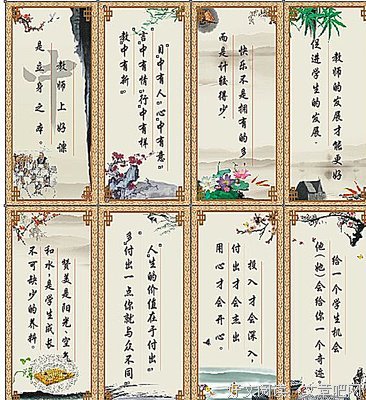 教师上好课
是立身之本。
目中有人，心中有意，
言中有情，行中有样，
教中有新。
快乐不是拥有的多
而是计较得少
教师的发展才能更好
促进学生的发展。
赞美是阳光、空气
和水，是学生成长
不可缺少的养料
人生的价值在于付出，
多付出一点你就与众不同。
投入才会深入，
付出才会杰出
用心才会开心。
给一个学生机会
他（她）会给你一个奇迹。